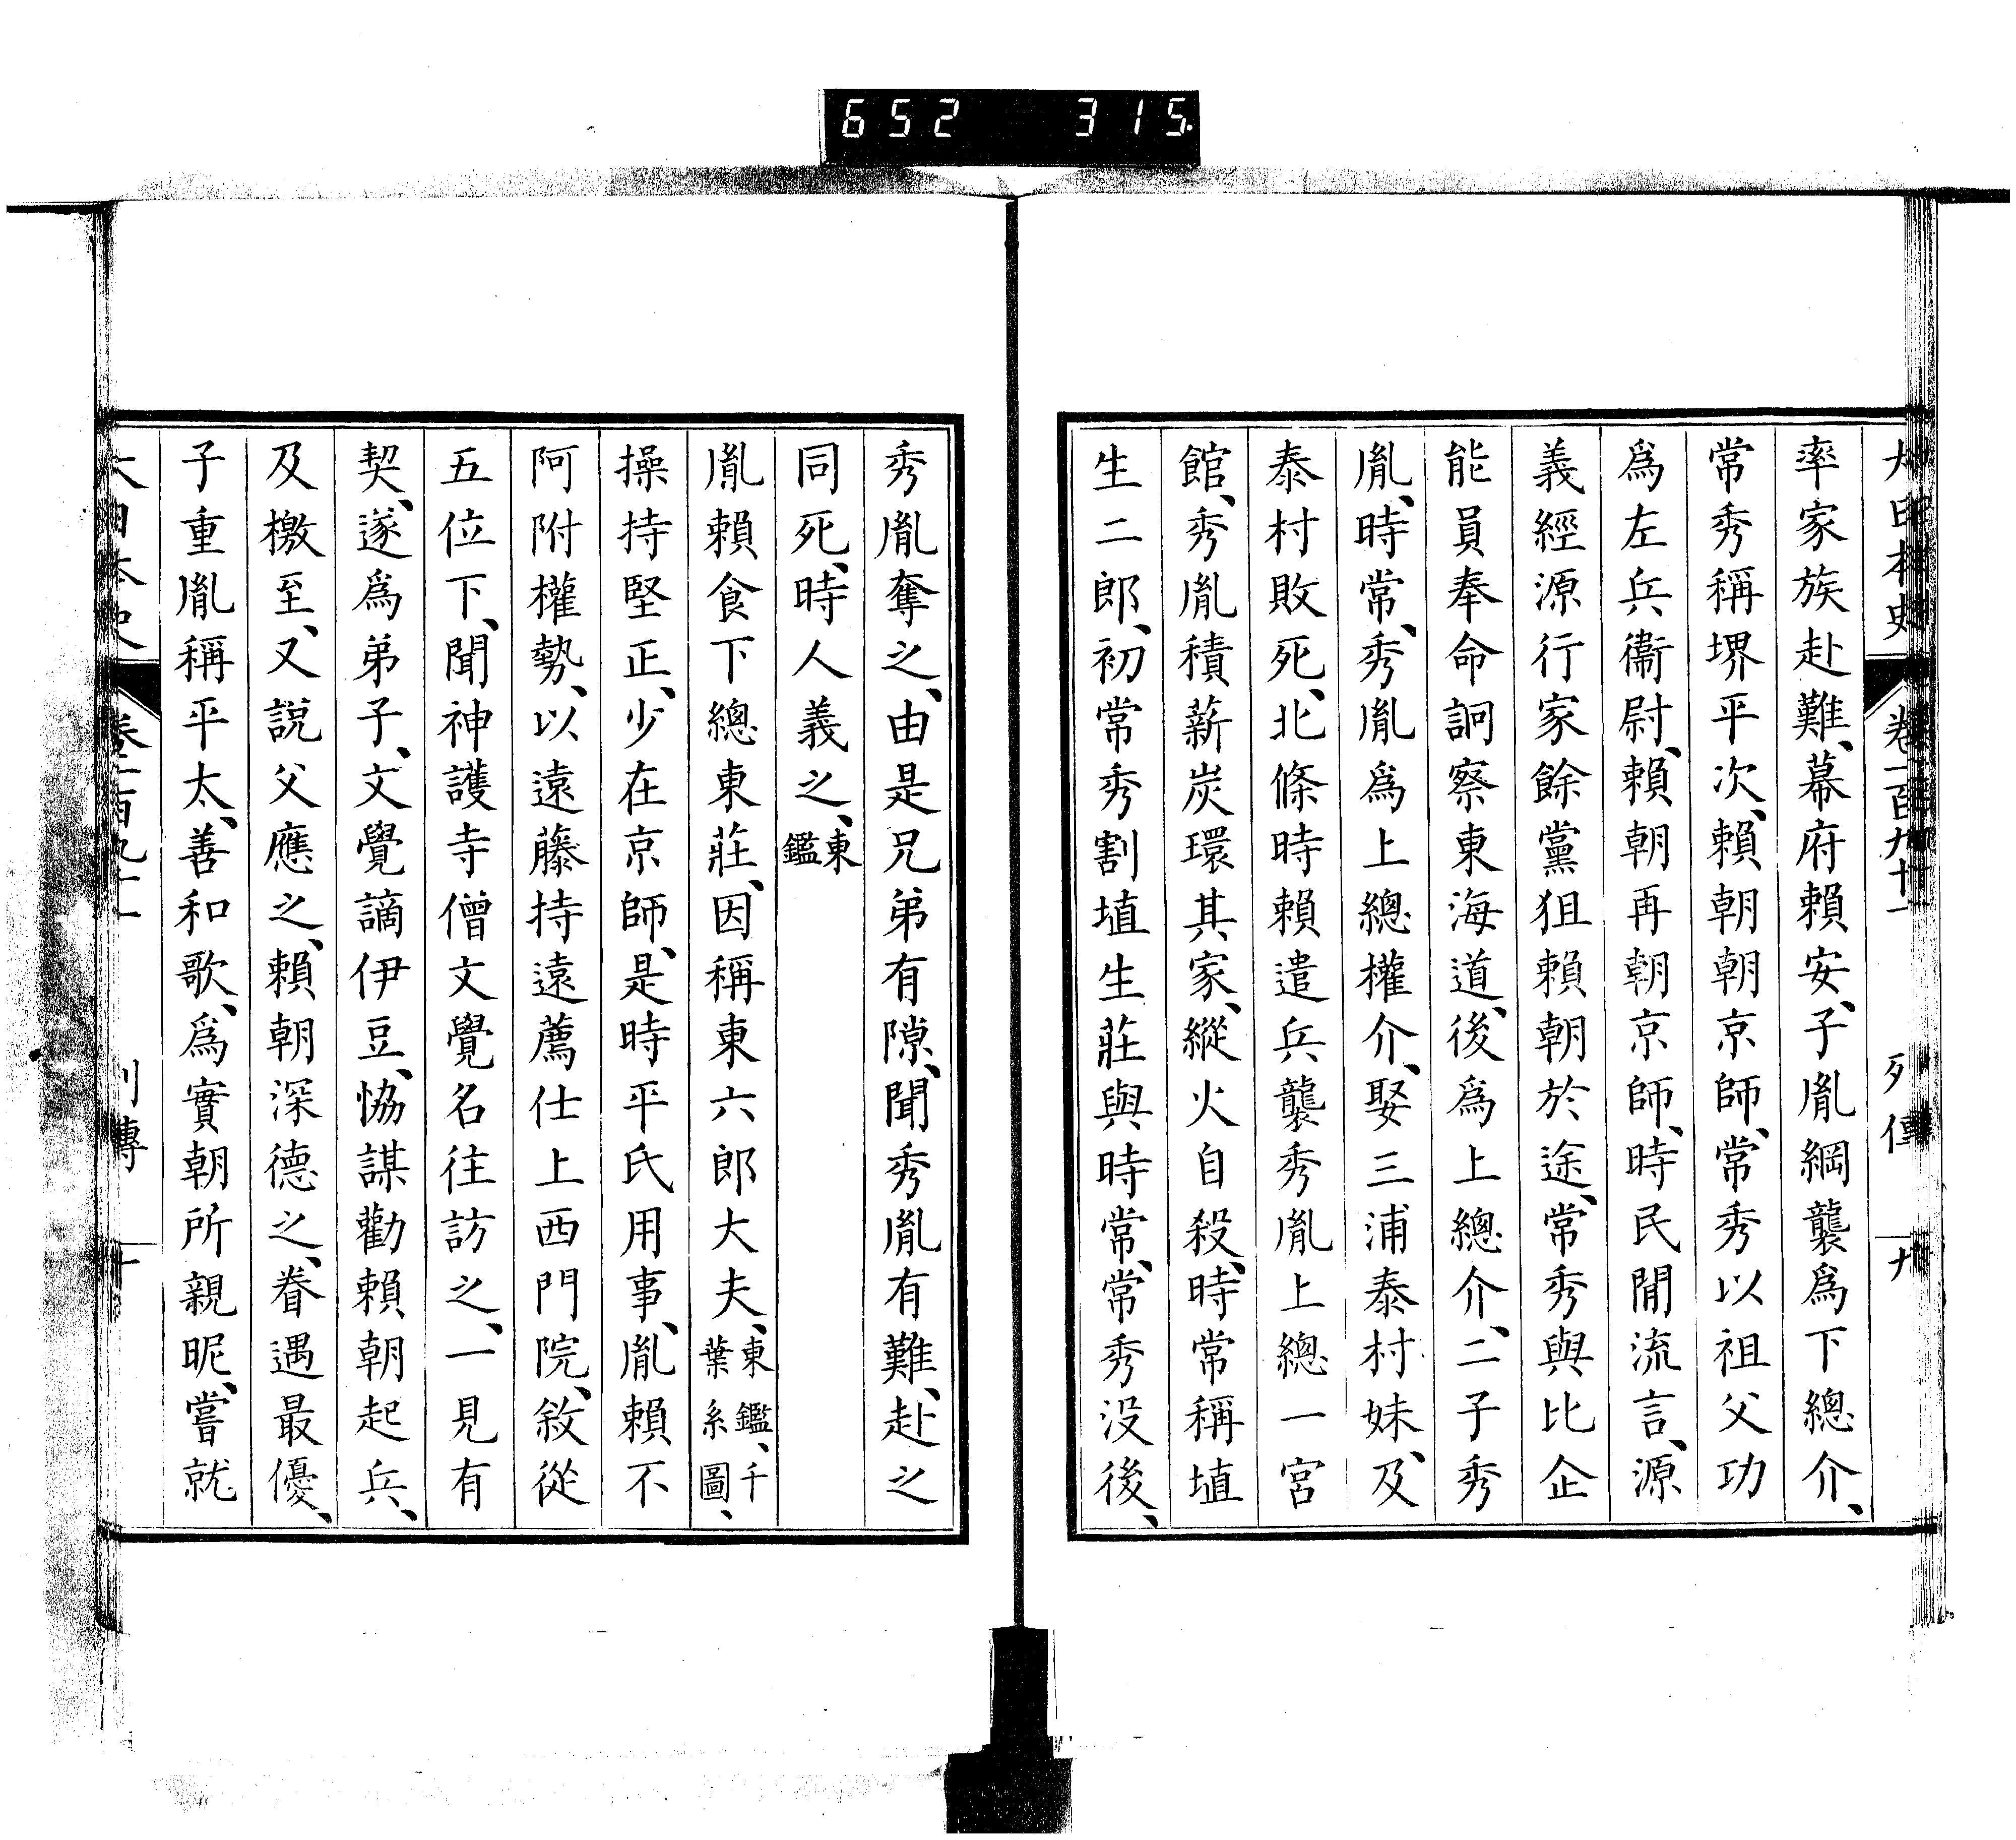 652 315
大日本史 卷一百九十一 列傳 九
率家族赴難、幕府賴安、子胤綱襲爲下總介、
常秀稱堺平次、賴朝朝京師、常秀以祖父功
爲左兵衞尉、賴朝再朝京師、時民閒流言、源
義經源行家餘黨狙賴朝於途、常秀與比企
能員奉命詗察東海道、後爲上總介、二子秀
胤、時常、秀胤爲上總權介、娶三浦泰村妹、及
泰村敗死、北條時賴遣兵襲秀胤上總一宮
館、秀胤積薪炭環其家、縱火自殺、時常稱埴
生二郎、初常秀割埴生莊與時常、常秀没後、
秀胤奪之、由是兄弟有隙、聞秀胤有難、赴之
同死、時人義之、東鑑
胤賴食下總東莊、因稱東六郎大夫、東鑑、千葉系圖、
操持堅正、少在京師、是時平氏用事、胤賴不
阿附權勢、以遠藤持遠薦仕上西門院、敘從
五位下、聞神護寺僧文覺名往訪之、一見有
契、遂爲弟子、文覺謫伊豆、恊謀勸賴朝起兵、
及檄至、又說父應之、賴朝深德之、眷遇最優、
子重胤稱平太、善和歌、爲實朝所親昵、嘗就
大日本史 卷一百九十一 列傳 十